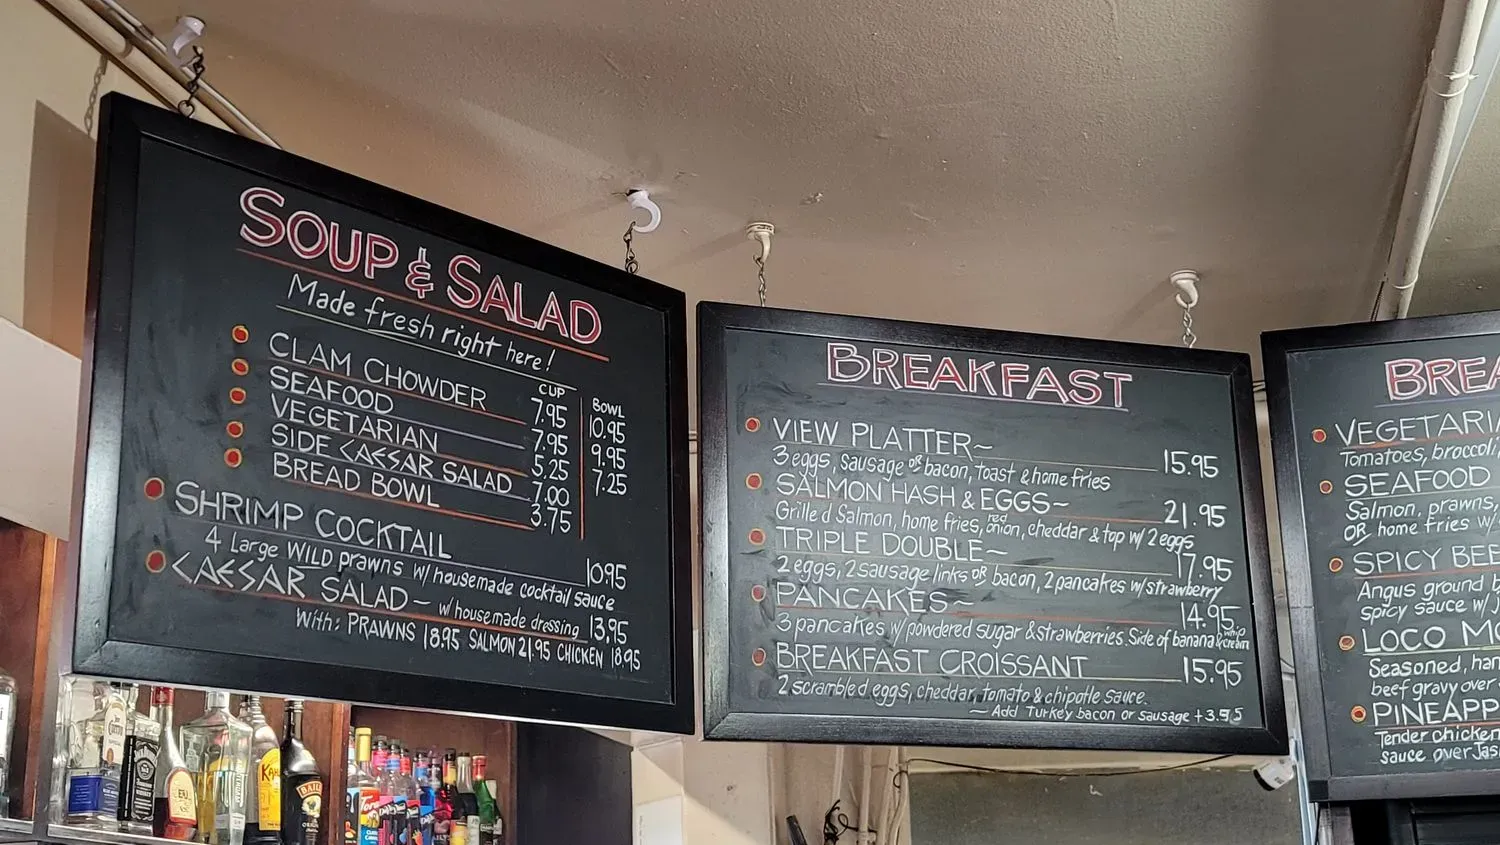 SOUP & SALAD
Made fresh right here!
CUP BOWL
CLAM CHOWDER 7.95 10.95
SEAFOOD 7.95 9.95
VEGETARIAN 5.25 7.25
SIDE CAESAR SALAD 7.00
BREAD BOWL 3.75
SHRIMP COCKTAIL 10.95
4 Large WILD prawns w/ housemade cocktail sauce
CAESAR SALAD ~ w/ housemade dressing 13.95
With: PRAWNS 18.95 SALMON 21.95 CHICKEN 18.95
BREAKFAST
VIEW PLATTER ~ 15.95
3 eggs, sausage OR bacon, toast & home fries
SALMON HASH & EGGS ~ 21.95
Grilled Salmon, home fries, red onion, cheddar & top w/ 2 eggs
TRIPLE DOUBLE ~ 17.95
2 eggs, 2 sausage links OR bacon, 2 pancakes w/ strawberry
PANCAKES ~ 14.95
3 pancakes w/ powdered sugar & strawberries. Side of banana & whip cream
BREAKFAST CROISSANT 15.95
2 scrambled eggs, cheddar, tomato & chipotle sauce.
~ Add Turkey bacon or sausage + 3.95
BREA
VEGETARIA
Tomatoes, broccoli,
SEAFOOD
Salmon, prawns,
OR home fries w/
SPICY BEE
Angus ground b
spicy sauce w/ J
LOCO MO
Seasoned, han
beef gravy over
PINEAPP
Tender chicken
sauce over Jas